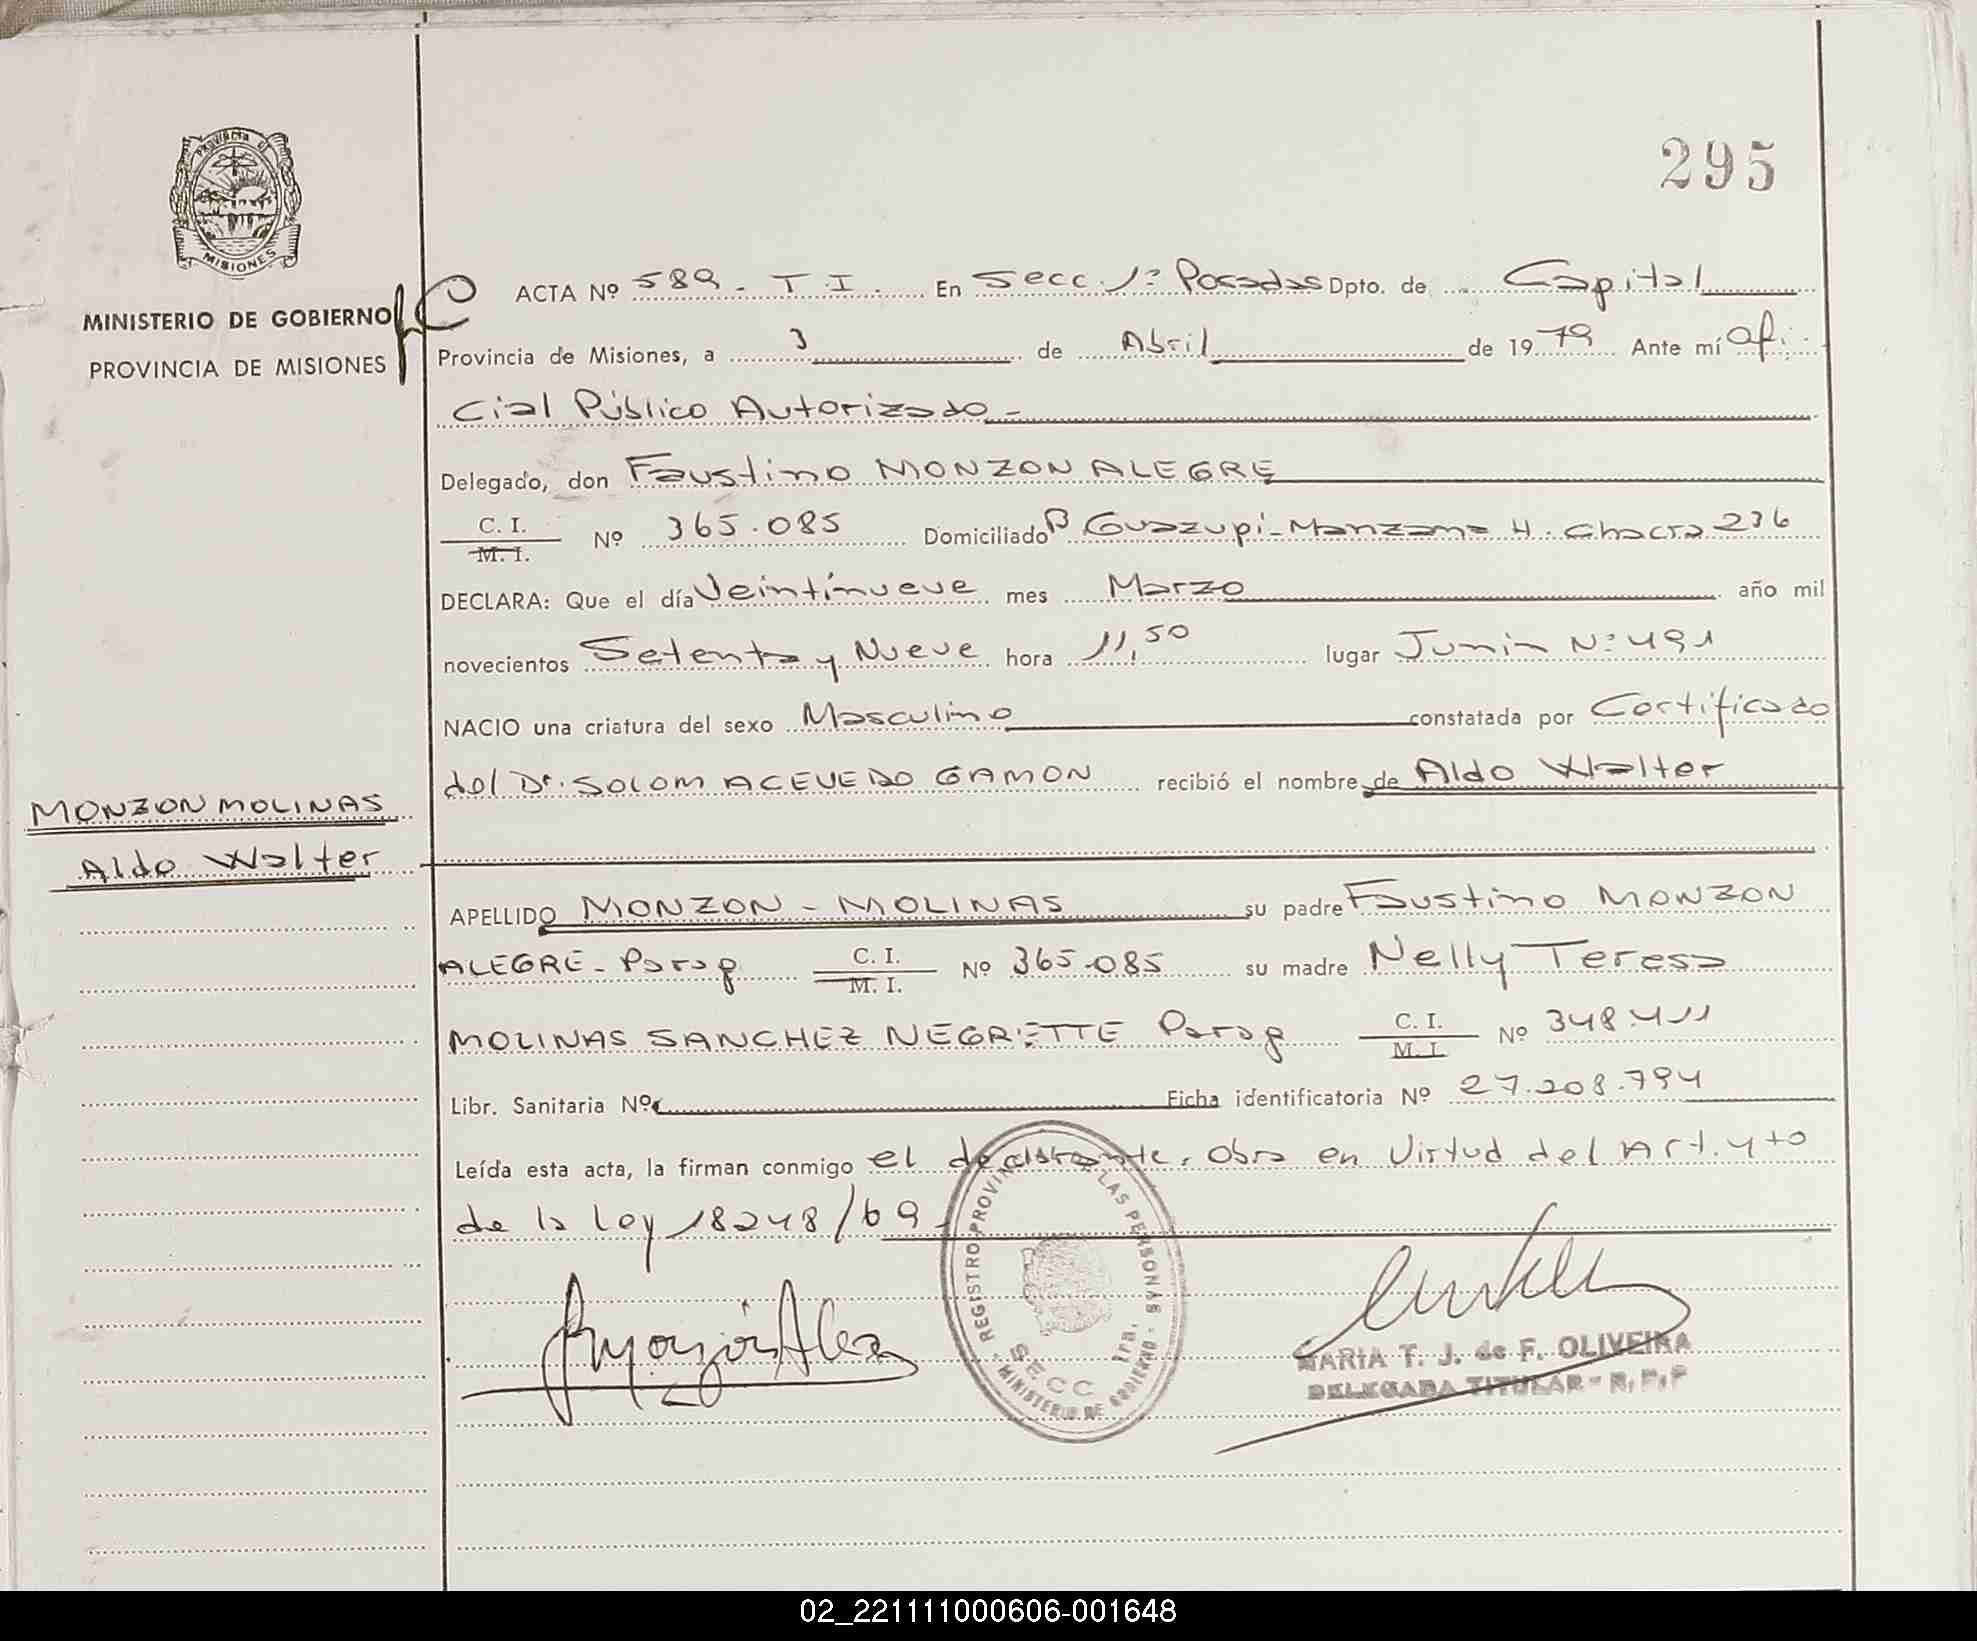 295
PROVINCIA DE
MISIONES
MINISTERIO DE GOBIERNO
PROVINCIA DE MISIONES
ACTA Nº 589 - T I. En Secc. 1ª Posadas Dpto. de Capital
Provincia de Misiones, a 3 de Abril de 1979 Ante mí Ofi-
cial Público Autorizado -
Delegado, don Faustino MONZON ALEGRE
C. I.
M. I. Nº 365.085 Domiciliado Bº Guazupi - Manzana H. Chacra 236
DECLARA: Que el día Veintinueve mes Marzo año mil
novecientos Setenta y Nueve hora 11,50 lugar Junin Nº 491
NACIO una criatura del sexo Masculino constatada por Certificado
del Dr. SOLOM ACEVEDO GAMON recibió el nombre de Aldo Walter
MONZON MOLINAS
Aldo Walter
APELLIDO MONZON - MOLINAS su padre Faustino MONZON
ALEGRE - Parag C. I.
M. I. Nº 365.085 su madre Nelly Teresa
MOLINAS SANCHEZ NEGRETTE Parag C. I.
M. I. Nº 348.411
Libr. Sanitaria Nº Ficha identificatoria Nº 27.208.794
Leída esta acta, la firman conmigo el declarante, Obra en Virtud del Art. 4to
de la Ley 18248/69 -
REGISTRO PROVINCIAL DE LAS PERSONAS
SECC 1ra.
MINISTERIO DE GOBIERNO
MARIA T. J. de F. OLIVEIRA
DELEGADA TITULAR - R. P. P
02_221111000606-001648